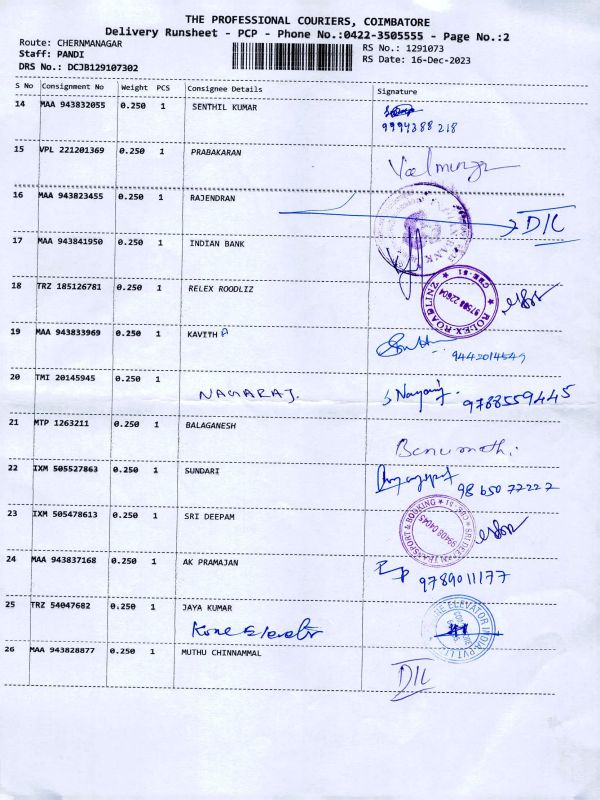 THE PROFESSIONAL COURIERS, COIMBATORE
Delivery Runsheet - PCP - Phone No.:0422-3505555 - Page No.:2
Route: CHERNMANAGAR
RS No.: 1291073
Staff: PANDI
RS Date: 16-Dec-2023
DRS No.: DCJB129107302
S No Consignment No Weight PCS Consignee Details Signature
14 MAA 943832055 0.250 1 SENTHIL KUMAR
9994388218
15 VPL 221201369 0.250 1 PRABAKARAN
16 MAA 943823455 0.250 1 RAJENDRAN D/L
17 MAA 943841950 0.250 1 INDIAN BANK
BANK
18 TRZ 185126781 0.250 1 RELEX ROODLIZ
ROLEX ROADLINZ ★ CBE-81 ★
97508 22604
19 MAA 943833969 0.250 1 KAVITHA
9442014549
20 TMI 20145945 0.250 1 NAGARAJ. 9788559445
21 MTP 1263211 0.250 1 BALAGANESH
22 IXM 505527863 0.250 1 SUNDARI
98650 77222
23 IXM 505478613 0.250 1 SRI DEEPAM
SRI DEEPAM TRANSPORT & BOOKING
98408 04045
24 MAA 943837168 0.250 1 AK PRAMAJAN
9789011177
25 TRZ 54047682 0.250 1 JAYA KUMAR
Kone Elevator
ELEVATOR INDIA PVT LTD
26 MAA 943828877 0.250 1 MUTHU CHINNAMMAL
D/L